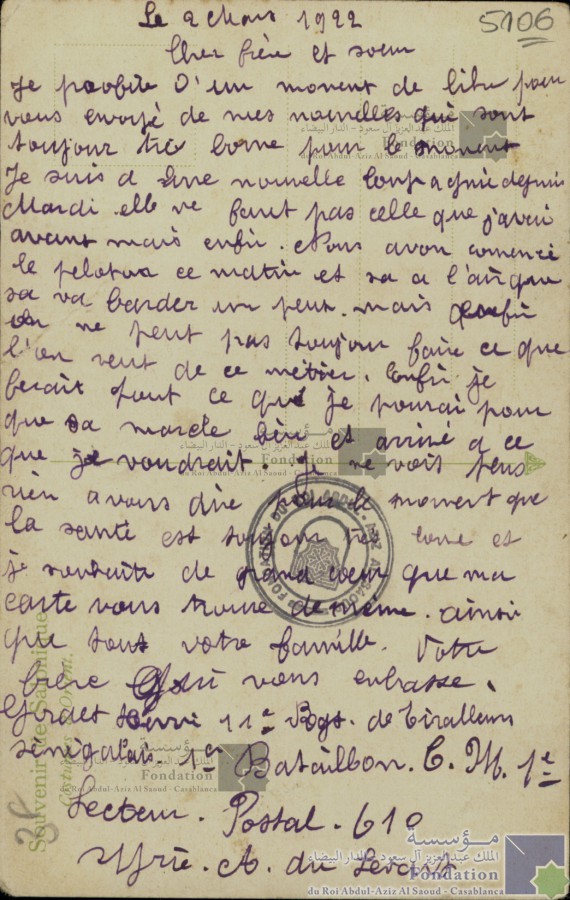 Le 2 Mars 1922
5106
Cher frère et soeur
Je profite d'un moment de libre pour
vous envoyé de mes nouvelles qui sont
toujour tré bonne pour le moment
Je suis a une nouvelle Compagnie depuis
Mardi elle ne faut pas celle que j'avai
avant mais enfin. Nous avon comencé
le peloton ce matin et sa a l'air que
sa va barder un peux. mais enfin
on ne peut pas toujour faire ce que
l'on veut de ce métier. Enfin je
ferait tout ce que je pourai pour
que sa marche bien et arrivé a ce
que je voudrait. Je ne voit plus
rien a vous dire pour le moment que
la santé est toujour tré bonne et
je souhaite de grand coeur que ma
carte vous trouve de même. ainsi
que tout votre famille. Votre
frère qui vous enbrasse.
Henri 11e Rgt. de Tirailleurs
Sénégalais. 1er Bataillon. C. M. 1e
Secteur. Postal. 610
Syrie. A. du Levant
Souvenir de Salonique
مؤسسة
الملك عبد العزيز آل سعود - الدار البيضاء
Fondation
du Roi Abdul-Aziz Al Saoud - Casablanca